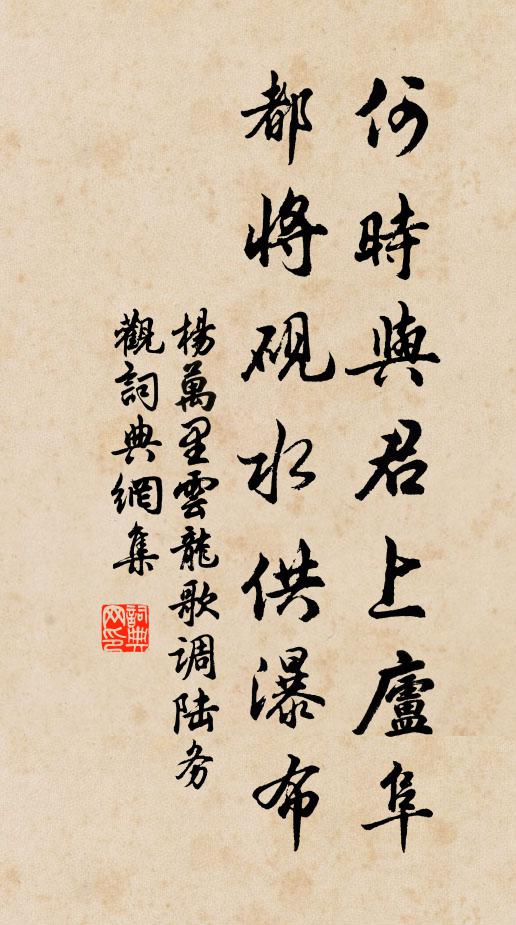 何時與君上廬阜
都將硯水供瀑布
楊萬里雲龍歌调陆务
觀詞典網集
詞典网印